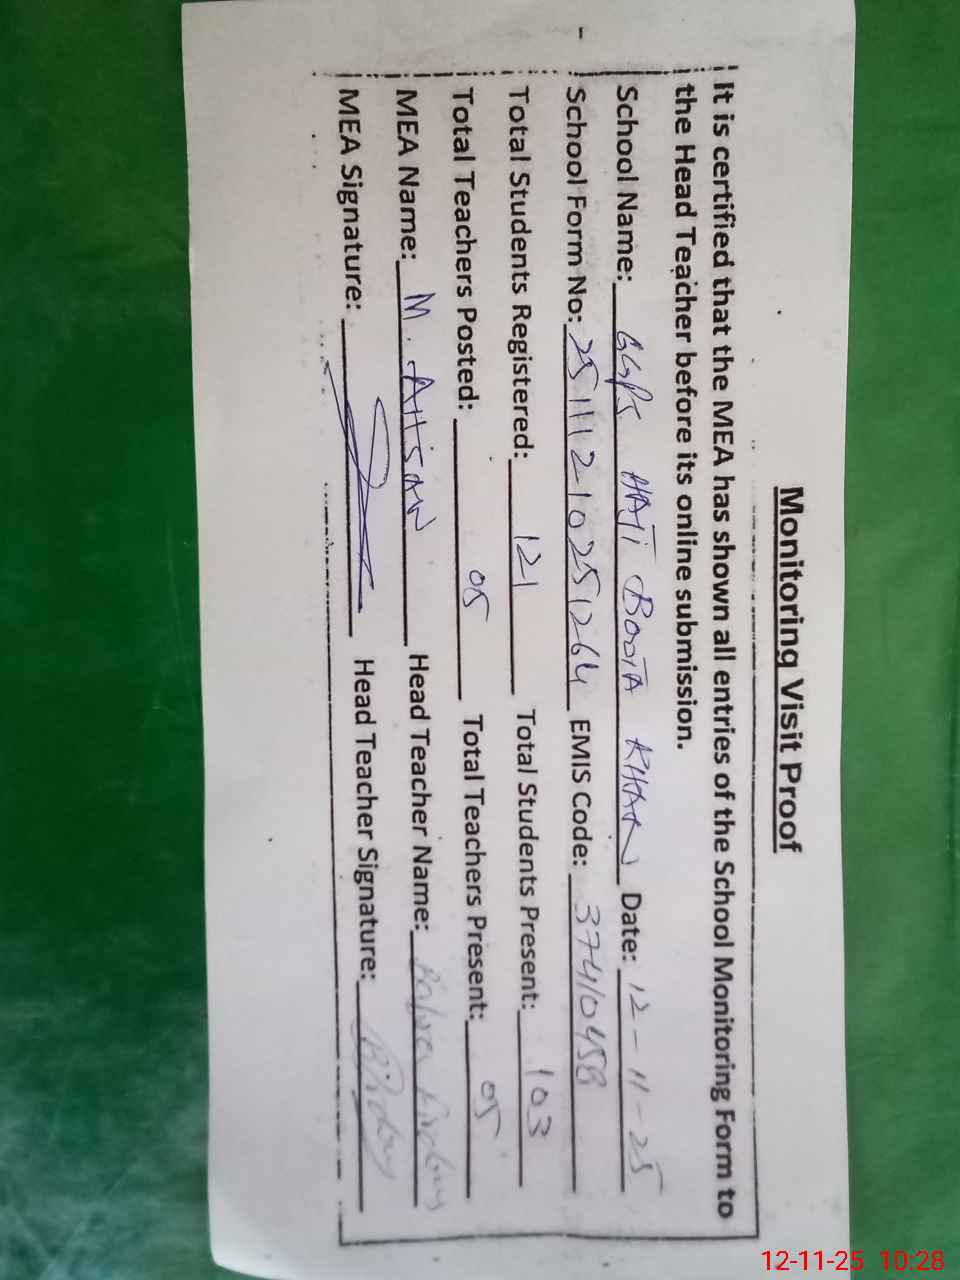 Monitoring Visit Proof
It is certified that the MEA has shown all entries of the School Monitoring Form to
the Head Teacher before its online submission.
School Name: GGPS HAJI BOOTA KHAN Date: 12-11-25
School Form No: 25111210251264 EMIS Code: 37410458
Total Students Registered: 121 Total Students Present: 103
Total Teachers Posted: 05 Total Teachers Present: 05
MEA Name: M. AHSAN Head Teacher Name:
MEA Signature: Head Teacher Signature:
12-11-25 10:28